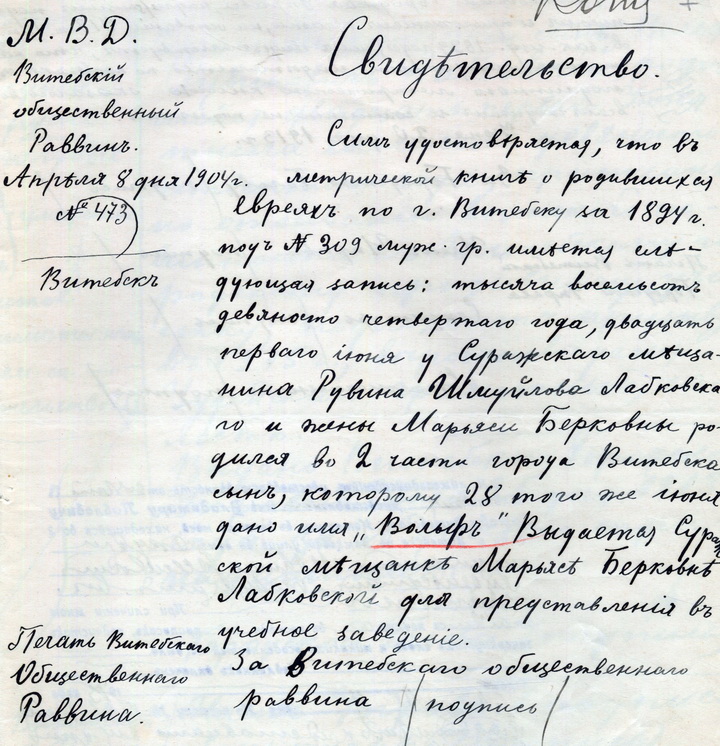 Копія
М. В. Д.
Витебскій
общественный
Раввинъ.
Апрѣля 8 дня 1904 г.
№ 473
Витебскъ
Свидѣтельство.
Симъ удостовѣряется, что въ
метрической книгѣ о родившихся
евреяхъ по г. Витебску за 1894 г.
подъ № 309 муж. гр. имѣется слѣ-
дующая запись: тысяча восемьсотъ
девяносто четвертаго года, двадцать
перваго іюня у Суражскаго мѣща-
нина Рувина Шмуйлова Лабковска-
го и жены Марьяси Берковны ро-
дился во 2 части города Витебска
сынъ, которому 28 того же іюня
дано имя „Вольфъ" Выдается Сураж-
ской мѣщанкѣ Марьясѣ Берковнѣ
Лабковской для представленія въ
учебное заведеніе.
За Витебскаго общественнаго
раввина (подпись)
Печать Витебскаго
Общественнаго
Раввина.